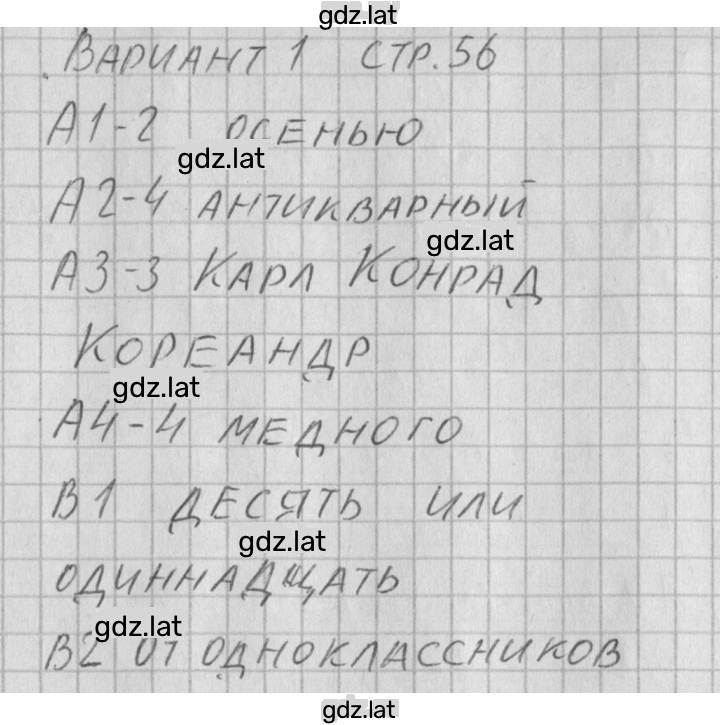 gdz.lat
Вариант 1 стр. 56
А1-2 осенью
gdz.lat
А2-4 антикварный
gdz.lat
А3-3 Карл Конрад
Кореандр
gdz.lat
А4-4 медного
В1 десять или
gdz.lat
одиннадцать
gdz.lat
В2 от одноклассников
gdz.lat